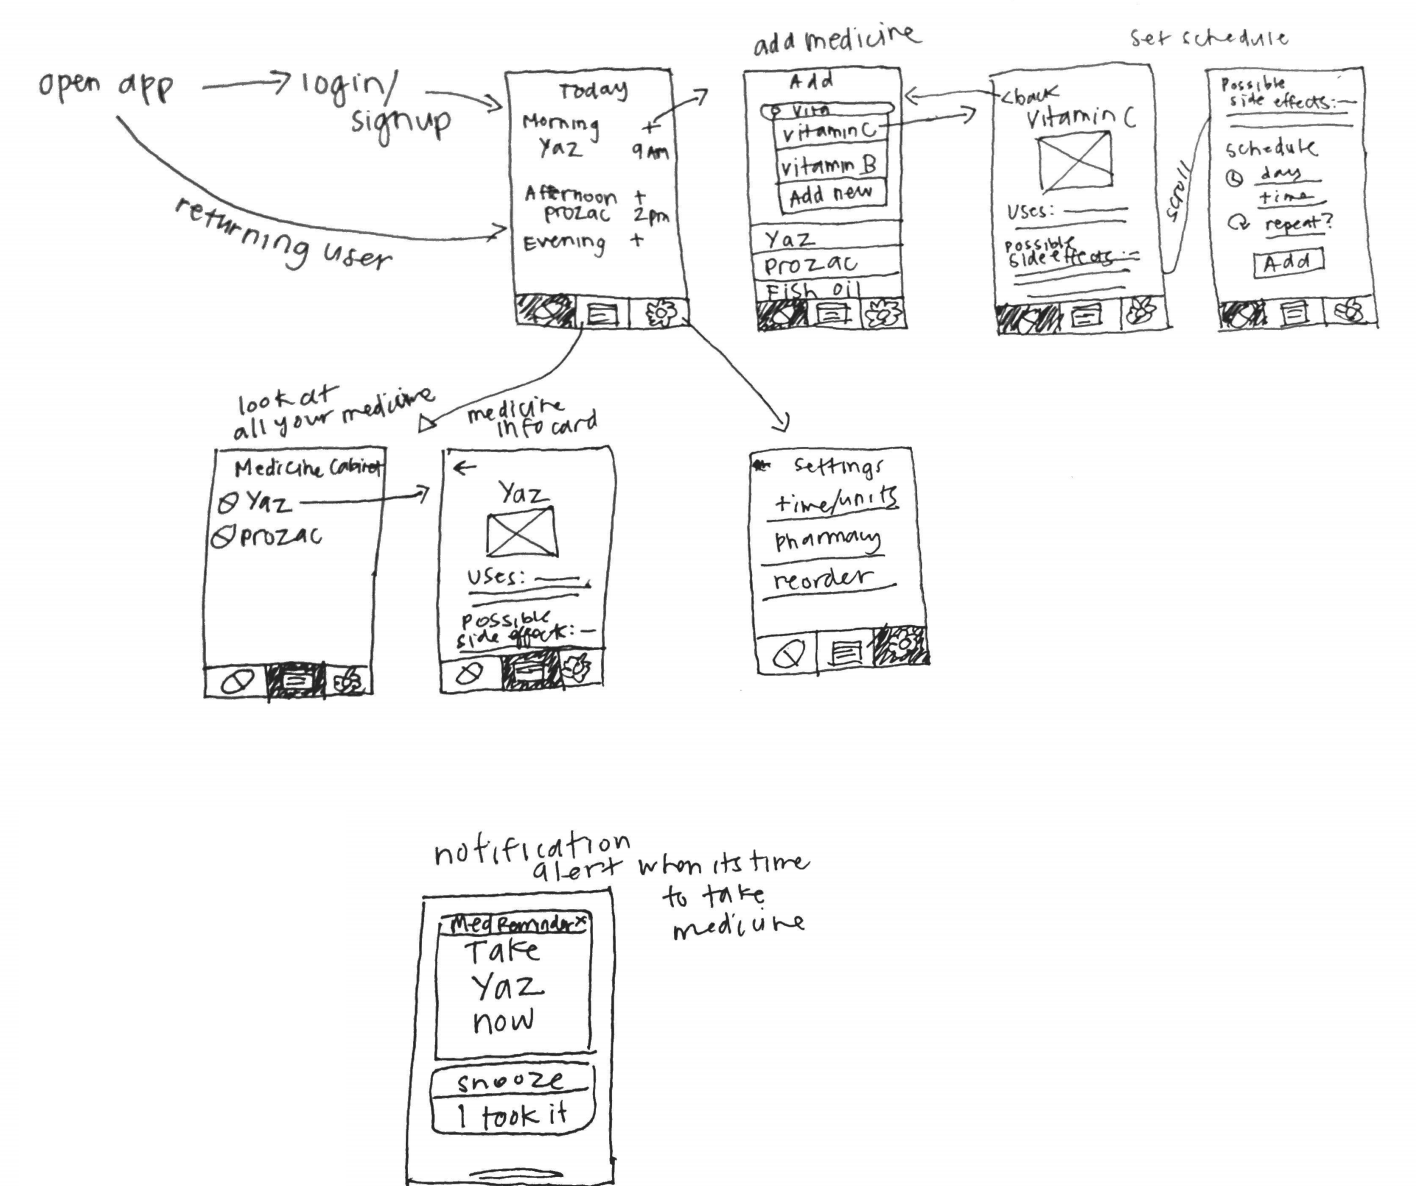 add medicine
set schedule
open app
login/
signup
returning user
Today
Morning +
Yaz 9 Am
Afternoon +
prozac 2pm
Evening +
Add
vita
vitamin C
vitamin B
Add new
Yaz
prozac
Fish oil
<back
Vitamin C
uses:
possible
side effects:
scroll
Possible
side effects:
schedule
day
time
repeat?
Add
look at
all your medicine
Medicine Cabinet
Yaz
prozac
medicine
info card
Yaz
uses:
possible
side effect:
settings
time/units
pharmacy
reorder
notification
alert when its time
to take
medicine
Med Reminder x
Take
Yaz
now
snooze
I took it